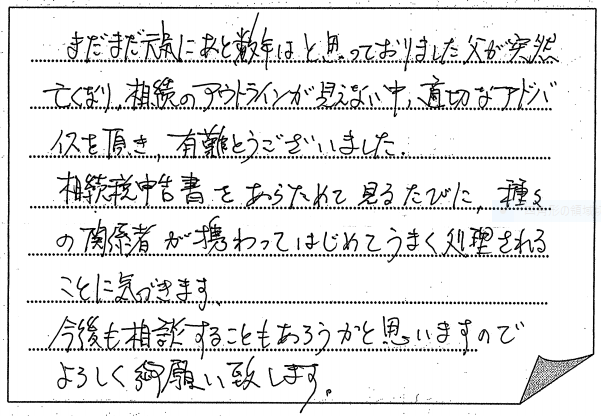 まだまだ元気にあと数年はと思っておりました父が突然
亡くなり、相続のアウトラインが見えない中、適切なアドバ
イスを頂き、有難とうございました。
相続税申告書をあらためて見るたびに、種々
の関係者が携わってはじめてうまく処理される
ことに気づきます。
今後も相談することもあろうかと思いますので
よろしく御願い致します。